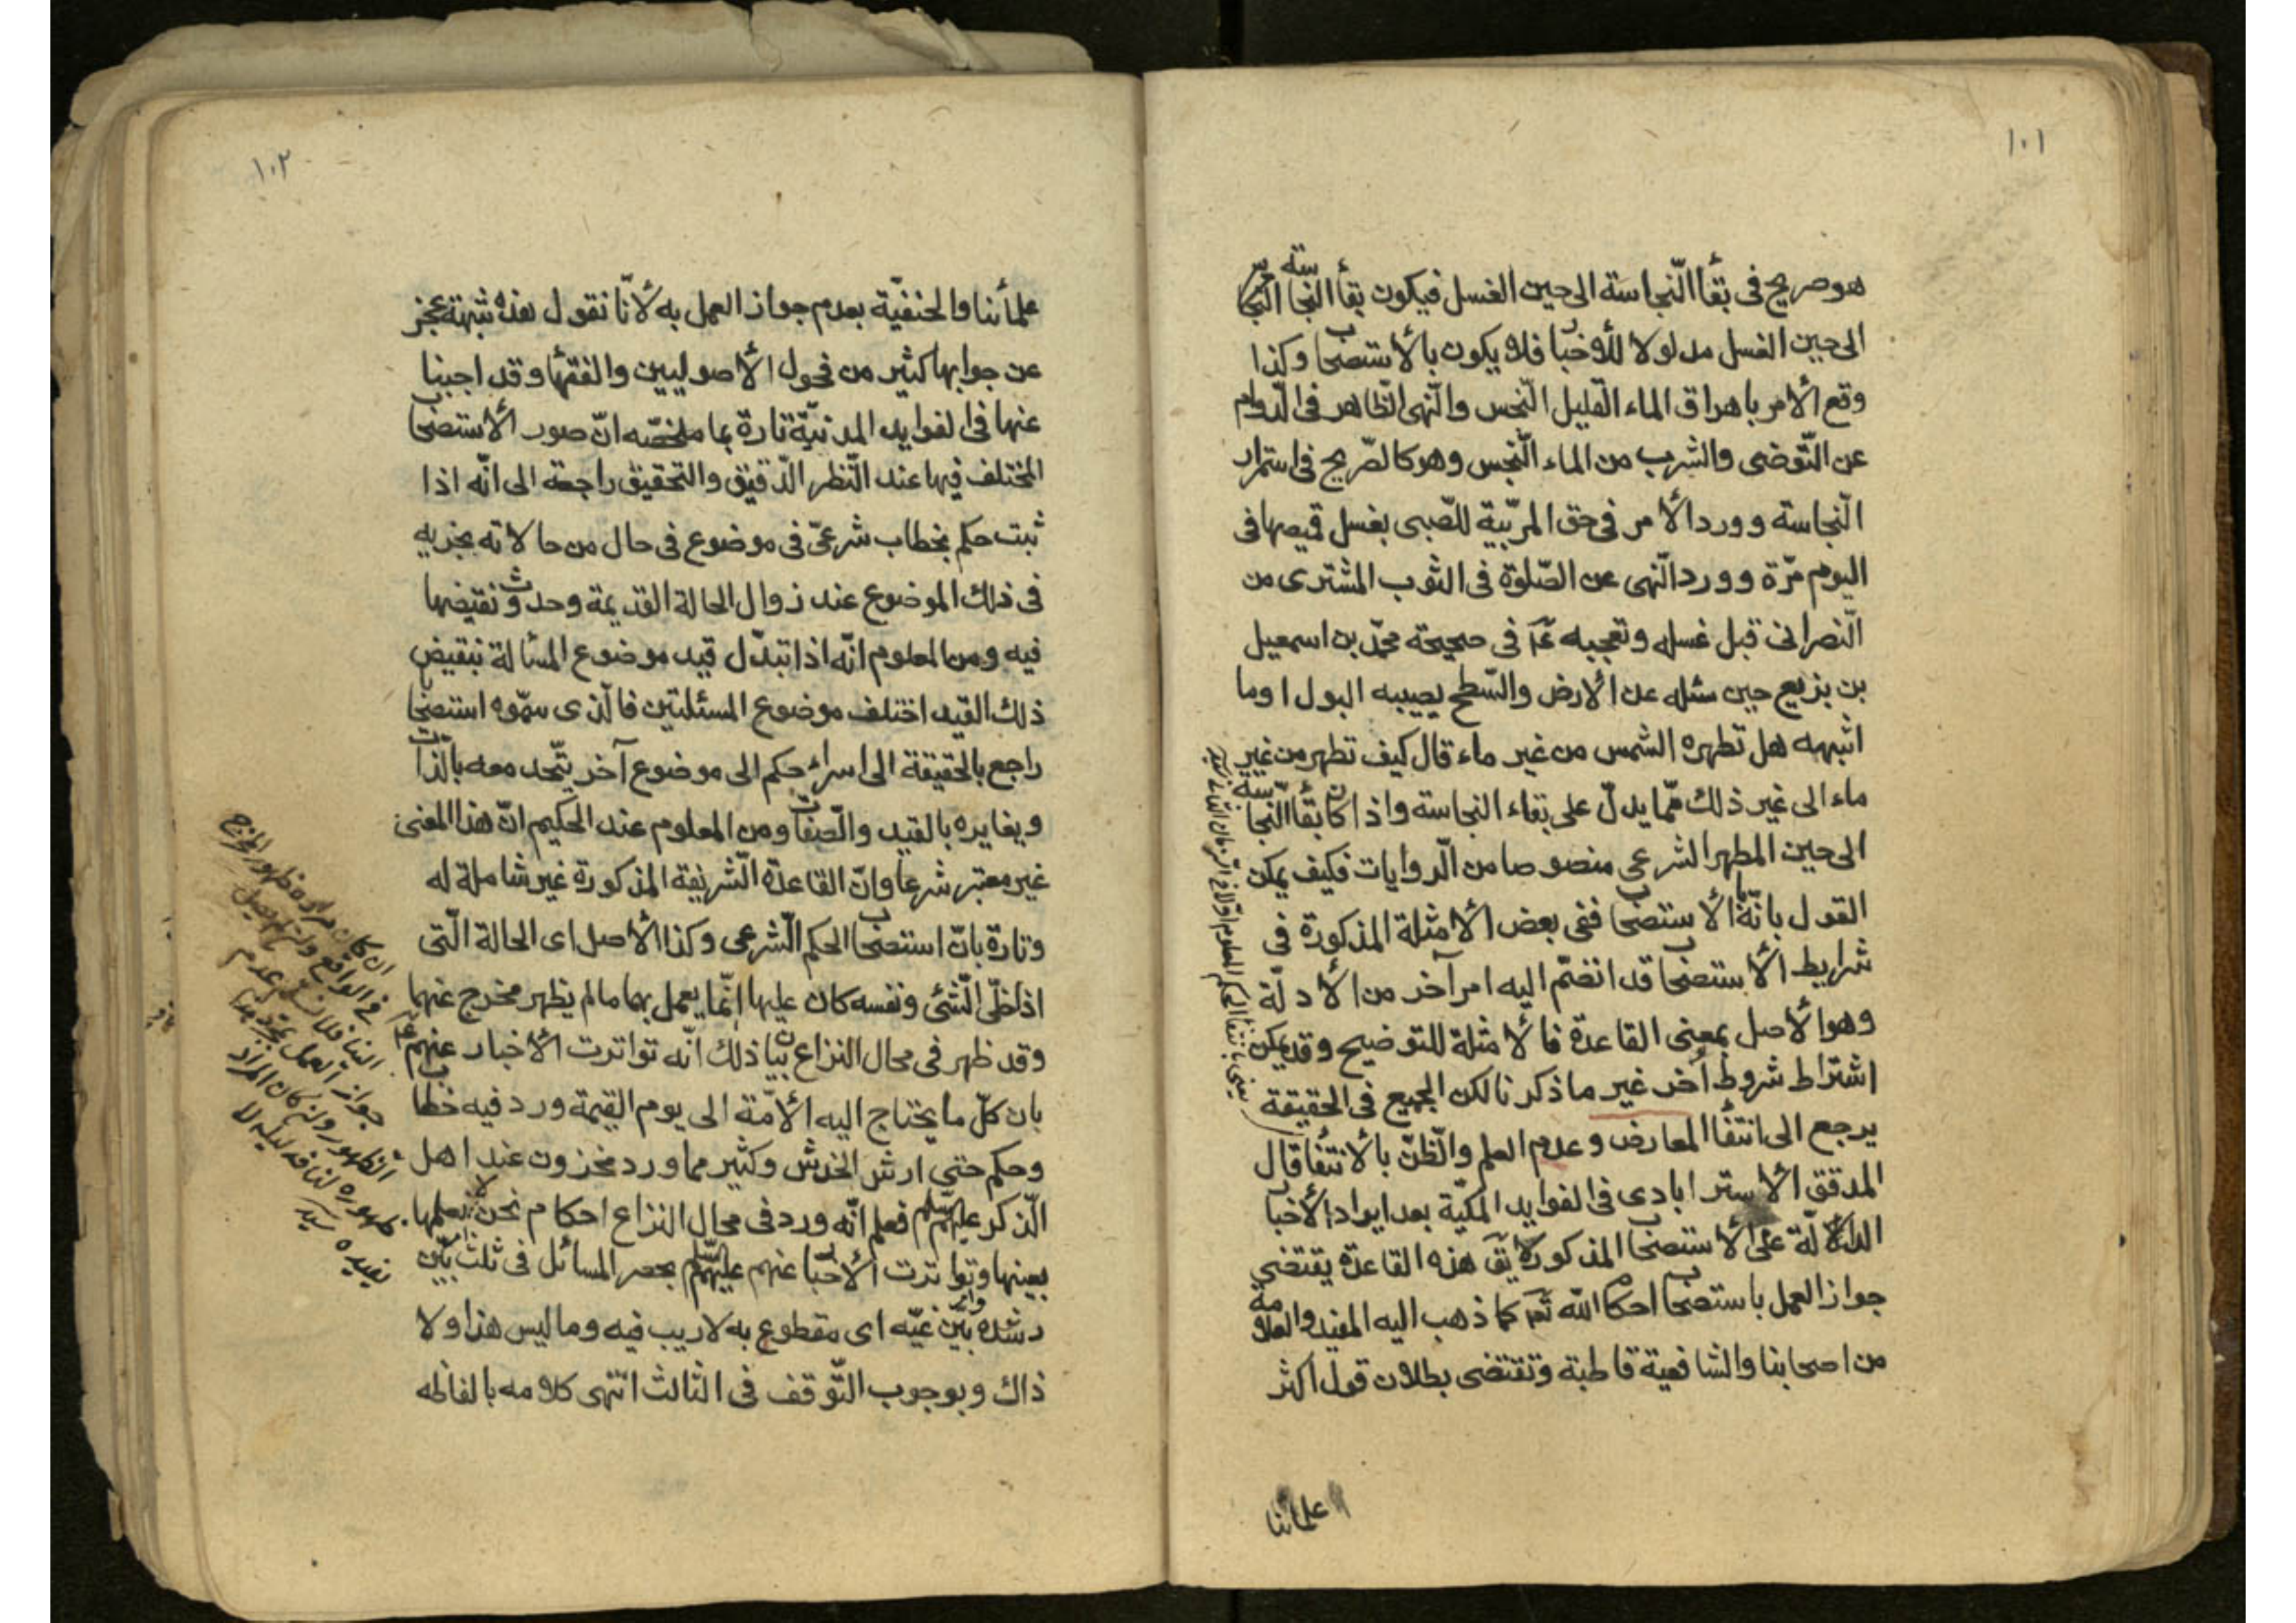 ١٠١
هو صريح فى بقأ النّجاسة الى حين الغسل فيكون بقأ النجاسة
الى حين الغسل مدلولا للأخبا فلا يكون بالأستصحاب وكذا
وقع الأمر باهراق الماء القليل النّجس والنّهى الظاهر فى الدّوام
عن التّوضى والشرب من الماء النّجس وهو كالصّريح فى استمرار
النّجاسة وورد الأمر فى حق المربّية للصّبى بغسل قميصها فى
اليوم مرّة وورد النّهى عن الصّلوة فى الثوب المشترى من
النّصرانى قبل غسله وتعجبه عم فى صحيحة محمّد بن اسمعيل
بن بزيع حين سئله عن الارض والسّطح يصيبه البول اوما
اشبهه هل تطهره الشمس من غير ماء قال كيف تطهر من غير
ماء الى غير ذلك ممّا يدلّ على بقاء النجاسة واذا كان بقأ النّجاسة
الى حين المطهر الشرعى منصوصا من الرّوايات فكيف يمكن
القول بانّه الأستصحاب ففى بعض الأمثلة المذكورة فى
شرايط الأستصحاب قد انضمّ اليه امر آخر من الأدلّة
وهو الأصل بمعنى القاعدة فالأمثلة للتوضيح وقد يمكن
اشتراط شروط أخر غير ما ذكرنا لكن الجميع فى الحقيقة
يرجع الى انتفأ المعارض وعدم العلم والظّنّ بالأنتفأ قال
المدقق الأستر ابادى فى الفوايد المكيّة بعد ايراد الأخبا
الدالّة على الأستصحاب المذكورة لا يق هذه القاعدة يقتضى
جواز العمل باستصحاب احكام الله تعم كما ذهب اليه المفيد والعلامة
من اصحابنا والشافعية قاطبة وتقتضى بطلان قول اكثر
علمائنا
١٠٢
علمأئنا والحنفيّة بعدم جواز العمل به لأنّا نقول هذه شبهة عجز
عن جوابها كثير من فحول الأصوليين والفقهأ وقد اجبنا
عنها فى الفوايد المدنيّة تارة بما ملخصّه انّ صور الأستصحاب
المختلف فيها عند النّظر الدّقيق والتحقيق راجعة الى انّه اذا
ثبت حكم بخطاب شرعىّ فى موضوع فى حال من حالاته بجريه
فى ذلك الموضوع عند زوال الحالة القديمة وحدوث نقيضها
فيه ومن المعلوم انّه اذا تبدّل قيد موضوع المسألة بنقيض
ذلك القيد اختلف موضوع المسئلتين فالّذى سمّوه استصحابا
راجع بالحقيقة الى اسراء حكم الى موضوع آخر يتّحد معه بالذّات
ويغايره بالقيد والصّفات ومن المعلوم عند الحكيم انّ هذا المعنى
غير معتبر شرعا وانّ القاعدة الشّريفة المذكورة غير شاملة له
وتارة بانّ استصحاب الحكم الشّرعى وكذا الأصل اى الحالة الّتى
اذا خلّى الشّئى ونفسه كان عليها انّما يعمل بهما مالم يظهر مخرج عنهما
وقد ظهر فى محال النزاع بيان ذلك انّه تواترت الأخبار عنهم عم
بان كلّ ما يحتاج اليه الأمّة الى يوم القيمة ورد فيه خطاب
وحكم حتى ارش الخدش وكثير مما ورد مخزون عند اهل
الّذكر عليهم السّلم فعلم انّه ورد فى محال النزاع احكام نحن لا نعلمها
بعينها وتواترت الأخبا عنهم عليهم السّلم بحصر المسائل فى ثلث بيّن
رشده وامر بيّن غيّه اى مقطوع به لا ريب فيه وما ليس هذا ولا
ذاك وبوجوب التّوقف فى الثالث انتهى كلامه بالفاظه
ان كان مراده ظهور المخرج
فى الواقع وان لم يصل
الينا فلا نسلّم عدم
جواز العمل بمجرد هذا
الظهور وان كان المراد